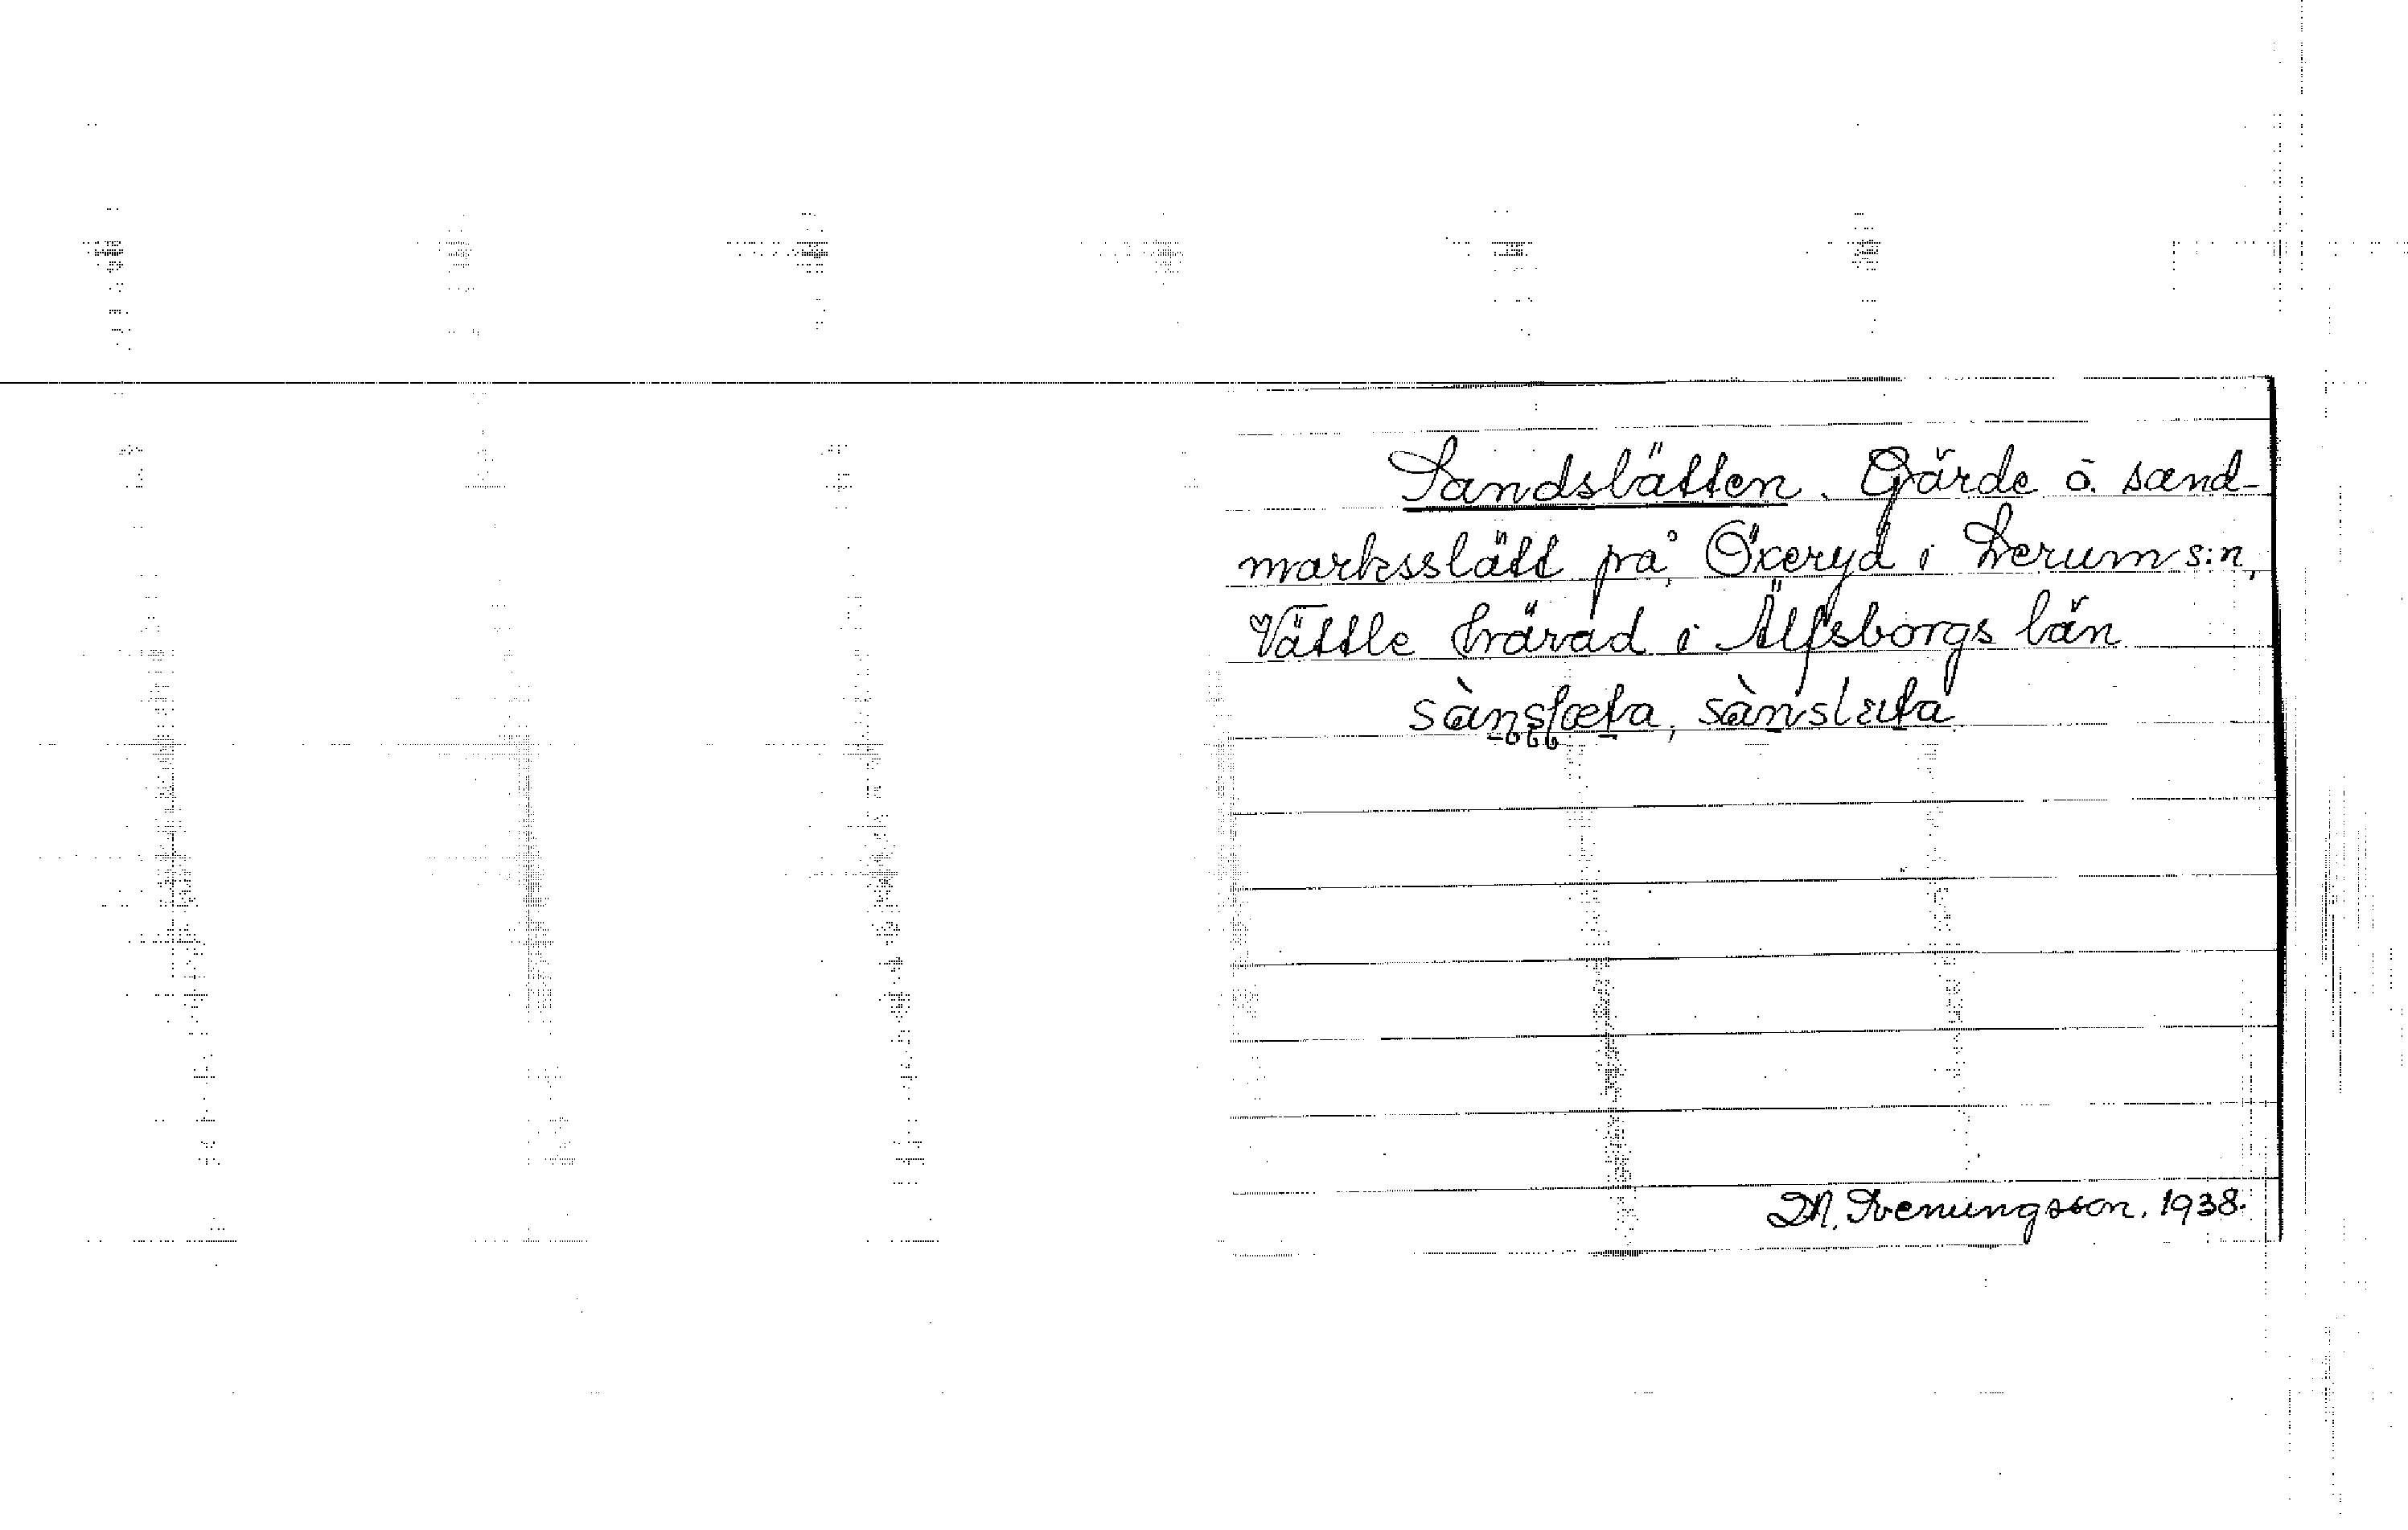 Sandslätten. Gärde å sand-
marksslätt på Öxeryd i Lerum s:n,
Vättle härad i Älfsborgs län
sànslæta, sànslæta
D.A. Svenungsson. 1938.